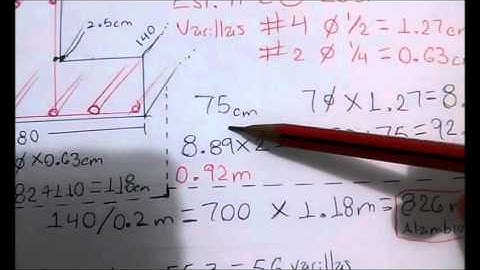 Varillas #4 Ø 1/2 = 1.27cm
#2 Ø 1/4 = 0.63cm
2.5cm
140
75cm
7Ø X 1.27 = 8.
80
8.89 X 2
75 = 92.
Ø X 0.63cm
0.92m
82 + 110 = 118cm
140/0.2m = 700 X 1.18m = 826
Alambró
= 56 Varillas